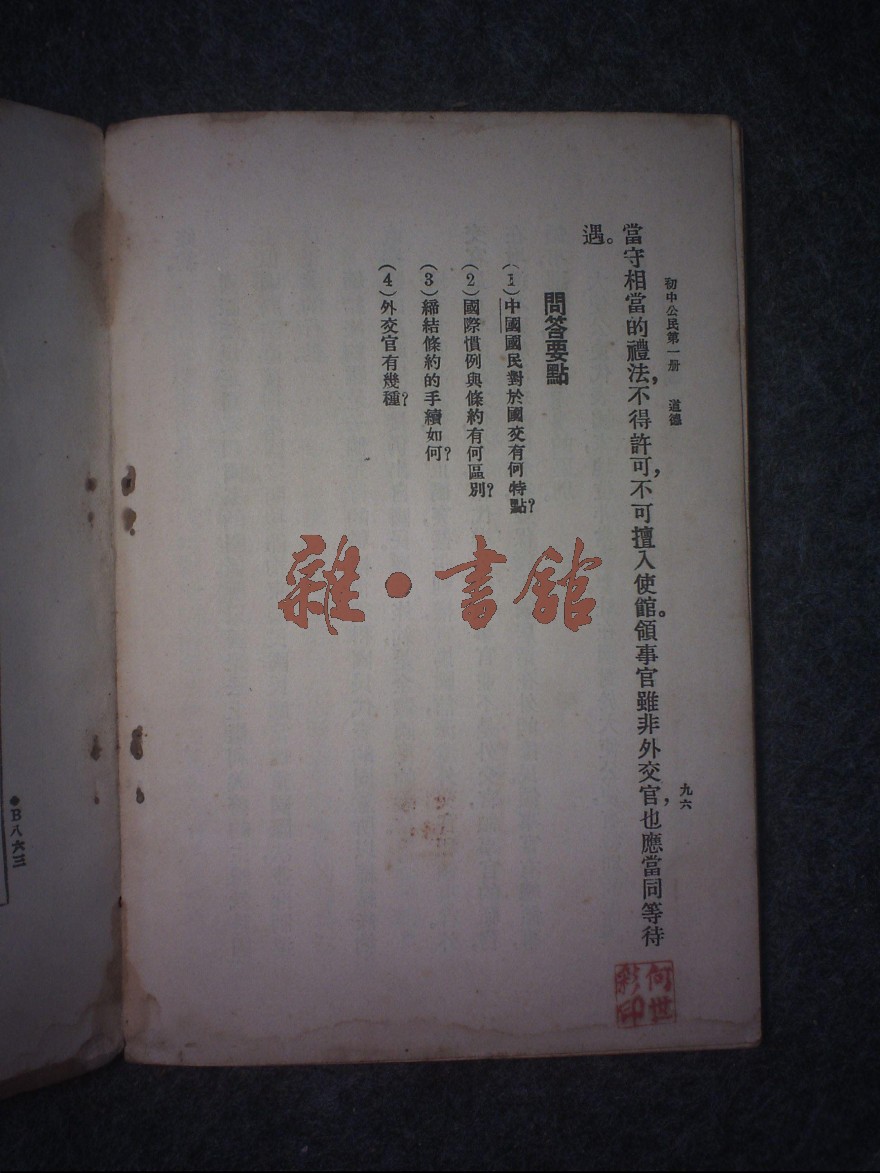 初中公民第一册　道德
九六
當守相當的禮法，不得許可，不可擅入使館。領事官雖非外交官，也應當同等待
遇。
問答要點
(1)中國國民對於國交有何特點？
(2)國際慣例與條約有何區別？
(3)締結條約的手續如何？
(4)外交官有幾種？
雜・書館
何世
彩印
●B八六三